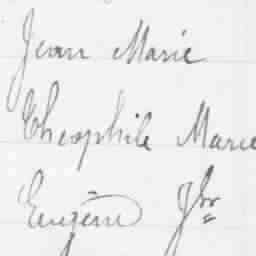 Jean Marie
Théophile Marie
Eugène